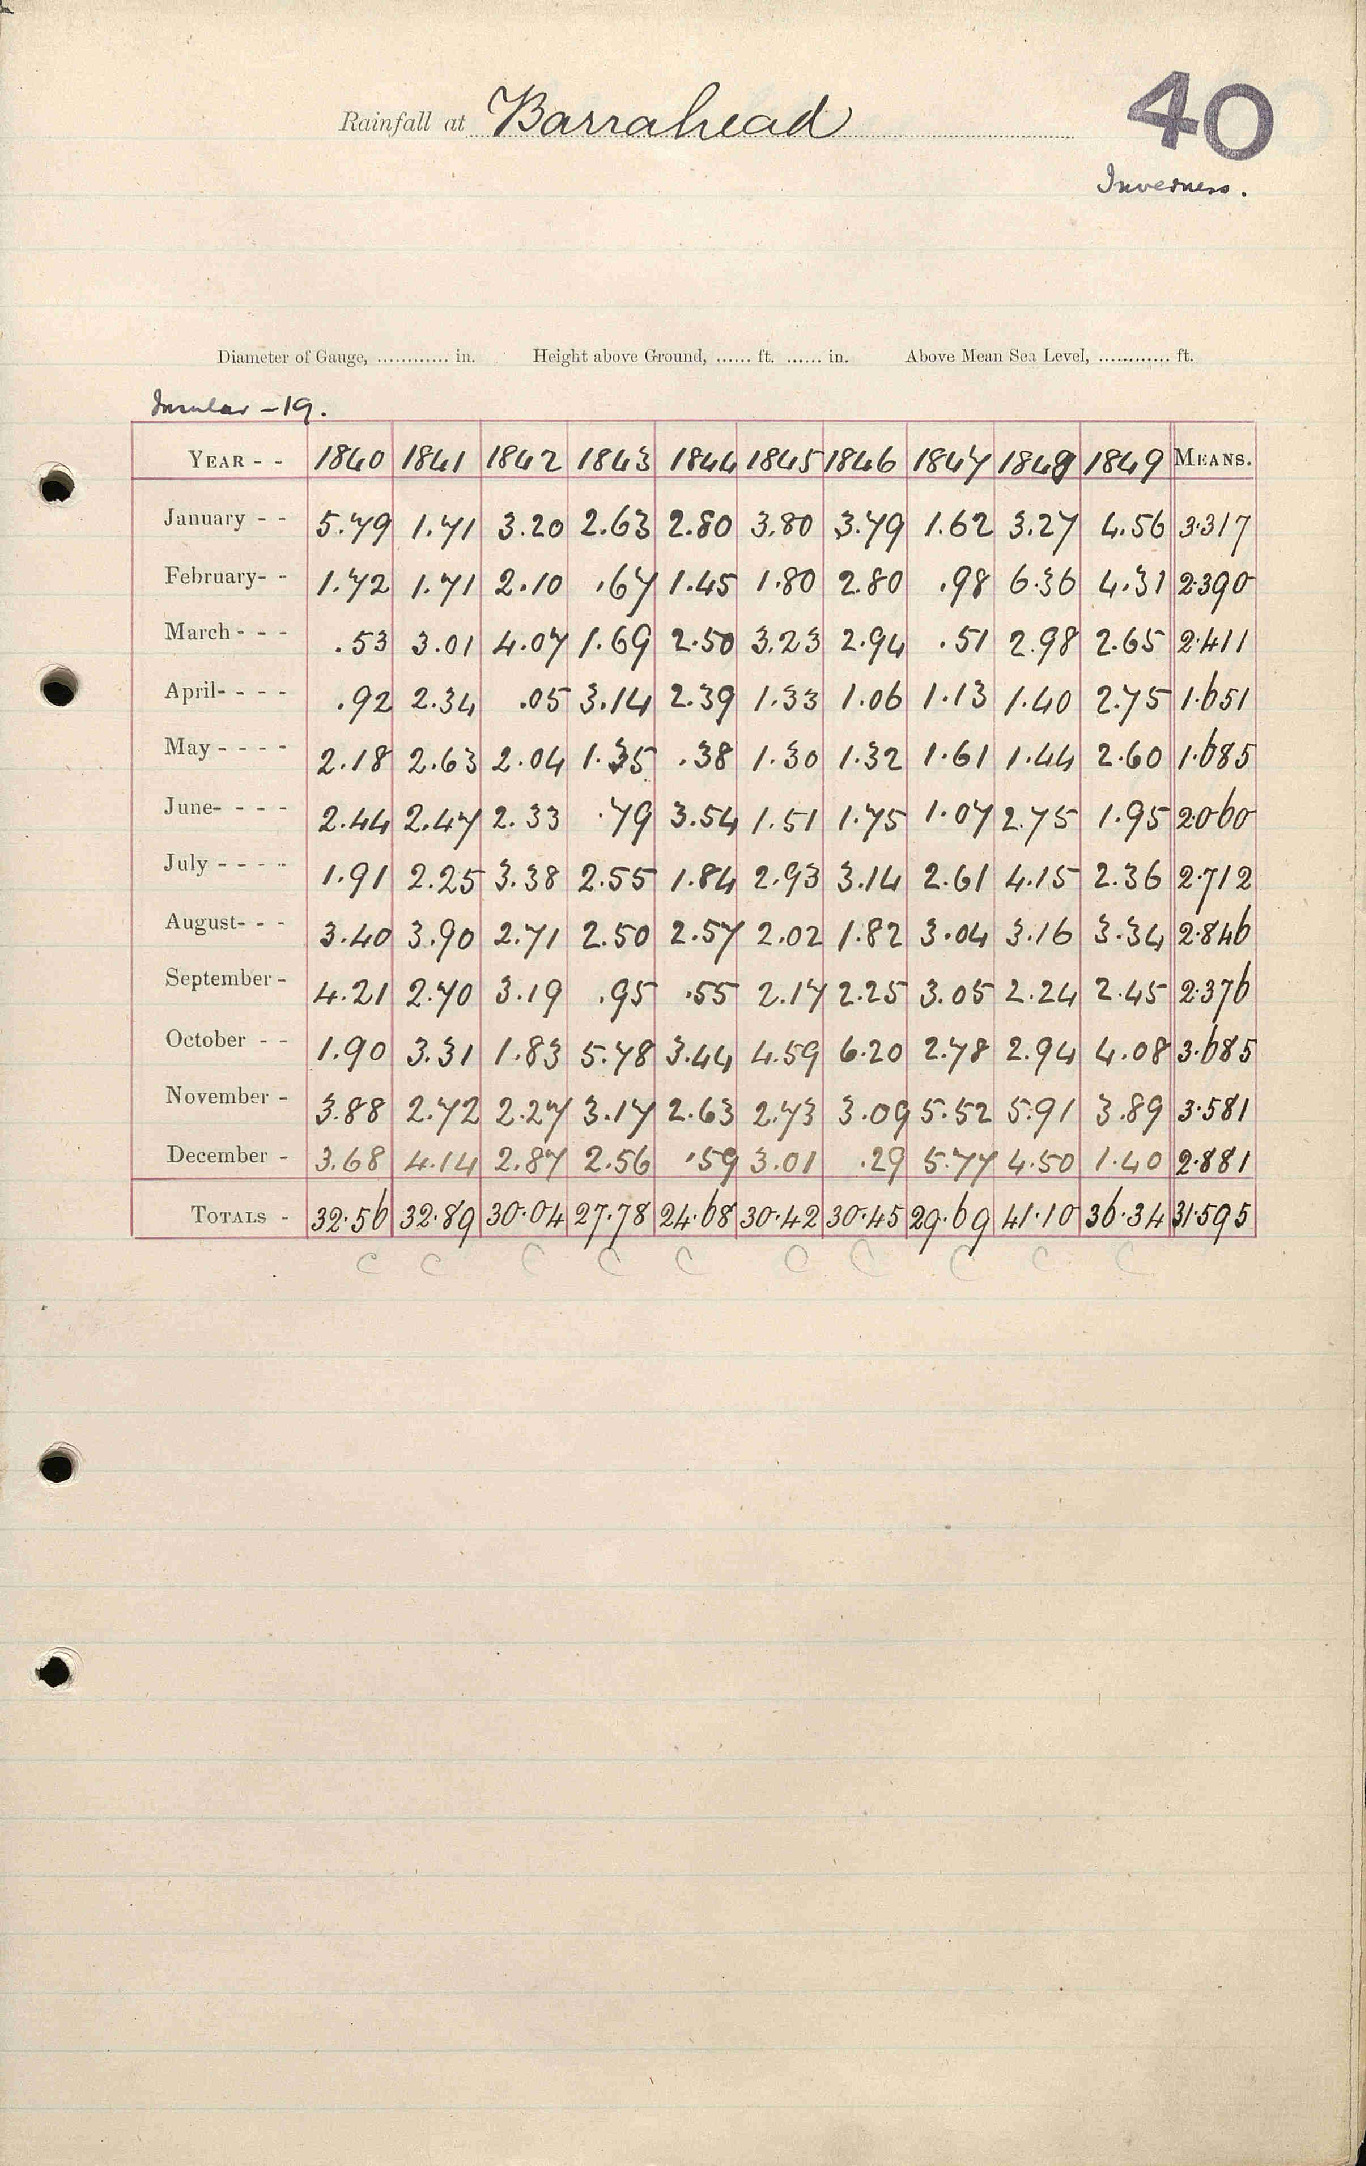 Rainfall at Barrahead
40
Inverness.
Diameter of Gauge, ............ in. Height above Ground, ...... ft. ...... in. Above Mean Sea Level, ............ ft.
Insular - 19.
YEAR - - 1840 1841 1842 1843 1844 1845 1846 1847 1848 1849 MEANS.
January - - 5.79 1.71 3.20 2.63 2.80 3.80 3.79 1.62 3.27 4.56 3.317
February- - 1.72 1.71 2.10 .67 1.45 1.80 2.80 .98 6.36 4.31 2.390
March - - - .53 3.01 4.07 1.69 2.50 3.23 2.94 .51 2.98 2.65 2.411
April- - - - .92 2.34 .05 3.14 2.39 1.33 1.06 1.13 1.40 2.75 1.651
May - - - - 2.18 2.63 2.04 1.35 .38 1.30 1.32 1.61 1.44 2.60 1.685
June- - - - 2.44 2.47 2.33 .79 3.54 1.51 1.75 1.07 2.75 1.95 2.060
July - - - - 1.91 2.25 3.38 2.55 1.84 2.93 3.14 2.61 4.15 2.36 2.712
August- - - 3.40 3.90 2.71 2.50 2.57 2.02 1.82 3.04 3.16 3.34 2.846
September - 4.21 2.70 3.19 .95 .55 2.17 2.25 3.05 2.24 2.45 2.376
October - - 1.90 3.31 1.83 5.78 3.44 4.59 6.20 2.78 2.94 4.08 3.685
November - 3.88 2.72 2.27 3.17 2.63 2.73 3.09 5.52 5.91 3.89 3.581
December - 3.68 4.14 2.87 2.56 .59 3.01 .29 5.77 4.50 1.40 2.881
TOTALS - 32.56 32.89 30.04 27.78 24.68 30.42 30.45 29.69 41.10 36.34 31.595
C C C C C C C C C C